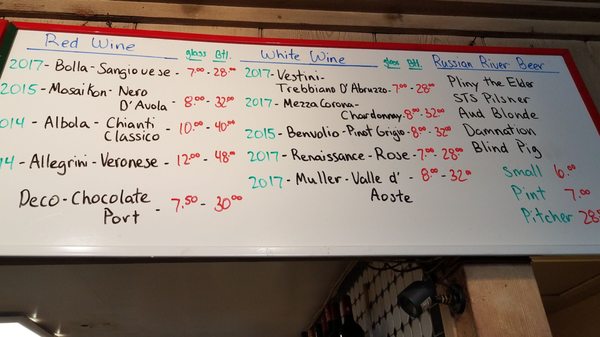 Red Wine
glass Btl.
2017 - Bolla - Sangiovese - 7.00 - 28.00
2015 - Mosaikon - Nero
D'Avola - 8.00 - 32.00
2014 - Albola - Chianti
Classico - 10.00 - 40.00
14 - Allegrini - Veronese - 12.00 - 48.00
Deco - Chocolate
Port - 7.50 - 30.00
White Wine
glass Btl.
2017 - Vestini -
Trebbiano D'Abruzzo - 7.00 - 28.00
2017 - MezzaCorona -
Chardonnay - 8.00 - 32.00
2015 - Benvolio - Pinot Grigio - 8.00 - 32.00
2017 - Renaissance - Rose - 7.00 - 28.00
2017 - Muller - Valle d' - 8.00 - 32.00
Aoste
Russian River Beer
Pliny the Elder
STS Pilsner
Aud Blonde
Damnation
Blind Pig
Small 6.00
Pint 7.00
Pitcher 28